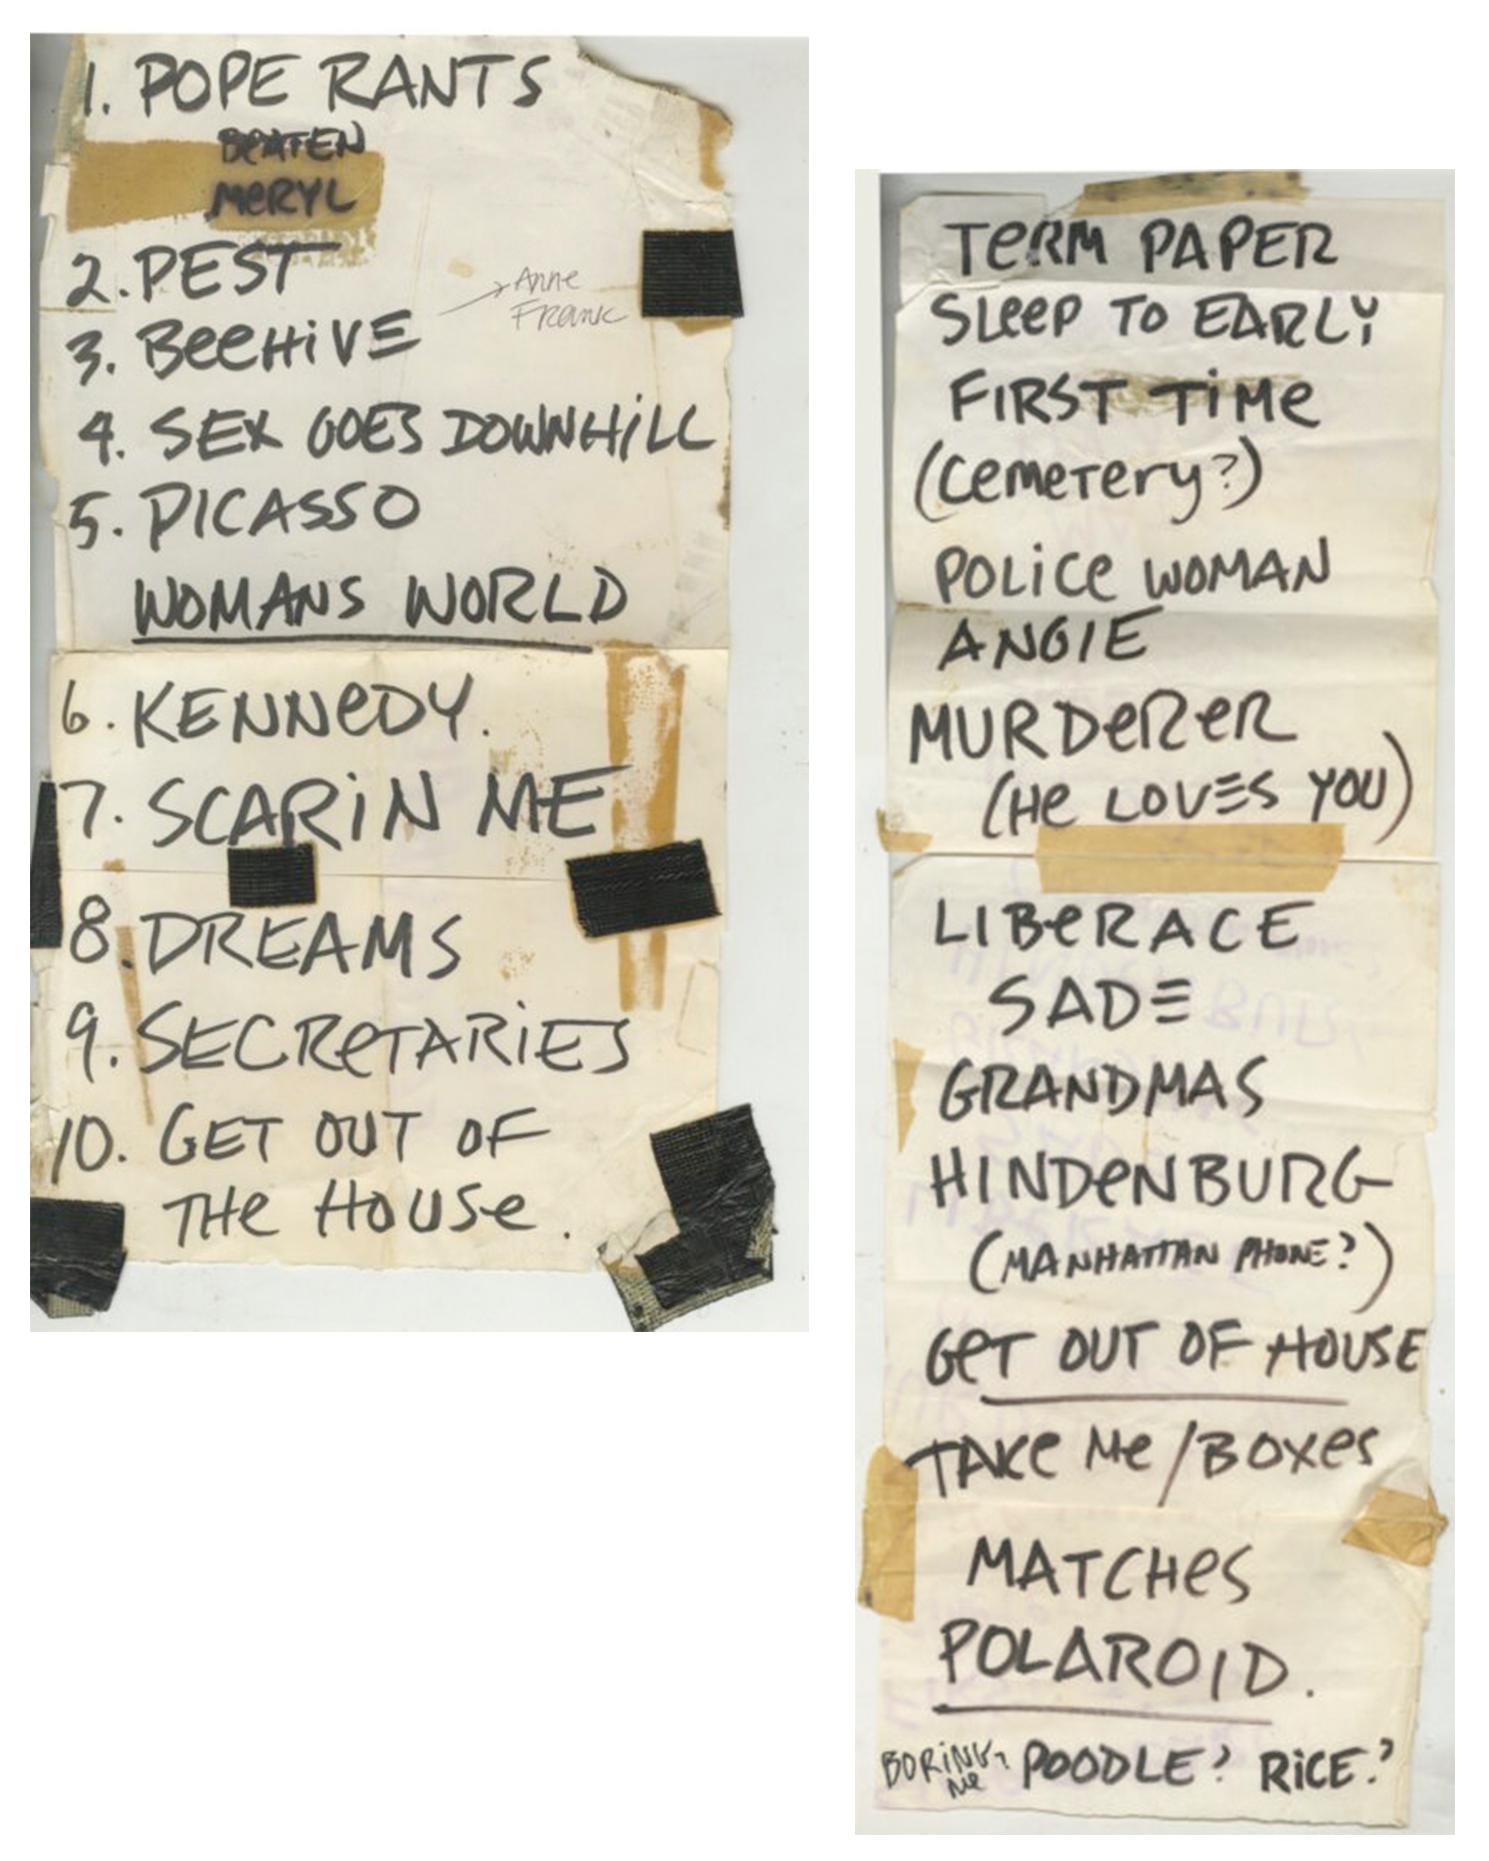 1. POPE RANTS
BEATEN
MERYL
2. PEST
3. BEEHIVE
→ Anne
Frank
4. SEX GOES DOWNHILL
5. PICASSO
WOMANS WORLD
6. KENNEDY.
7. SCARIN ME
8. DREAMS
9. SECRETARIES
10. GET OUT OF
THE HOUSE.
TERM PAPER
SLEEP TO EARLY
FIRST TIME
(CEMETERY?)
POLICE WOMAN
ANGIE
MURDERER
(HE LOVES YOU)
LIBERACE
SADE
GRANDMAS
HINDENBURG
(MANHATTAN PHONE?)
GET OUT OF HOUSE
TAKE ME/BOXES
MATCHES
POLAROID.
BORING? ME POODLE? RICE?